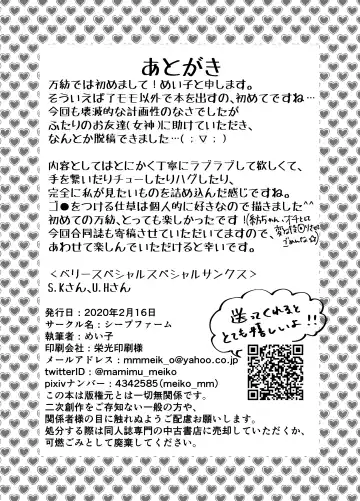 あとがき
万紡では初めまして！めい子と申します。
そういえば了モモ以外で本を出すの、初めてですね…
今回も壊滅的な計画性のなさでしたが
ふたりのお友達(女神)に助けていただき、
なんとか脱稿できました…( ; ▽ ; )
内容としてはとにかく丁寧にラブラブして欲しくて、
手を繋いだりチューしたりハグしたり、
完全に私が見たいものを詰め込んだ感じですね。
ゴ●をつける仕草は個人的に好きなので描きました^^
初めての万紡、とっても楽しかったです！
今回合同誌も寄稿させていただいてますので、
あわせて楽しんでいただけると幸いです。
ごめんね☆
＜ベリースペシャルスペシャルサンクス＞
S.Kさん、U.Hさん
送ってくれると
とても嬉しいよ!!
発行日：2020年2月16日
サークル名：シープファーム
執筆者：めい子
印刷会社：栄光印刷様
メールアドレス：mmmeik_o@yahoo.co.jp
twitterID：@mamimu_meiko
pixivナンバー：4342585(meiko_mm)
この本は版権元とは一切無関係です。
二次創作をご存知ない一般の方や、
関係者様の目に触れぬようご配慮お願いします。
処分する際は同人誌専門の中古書店に売却していただくか、
可燃ごみとして廃棄してください。